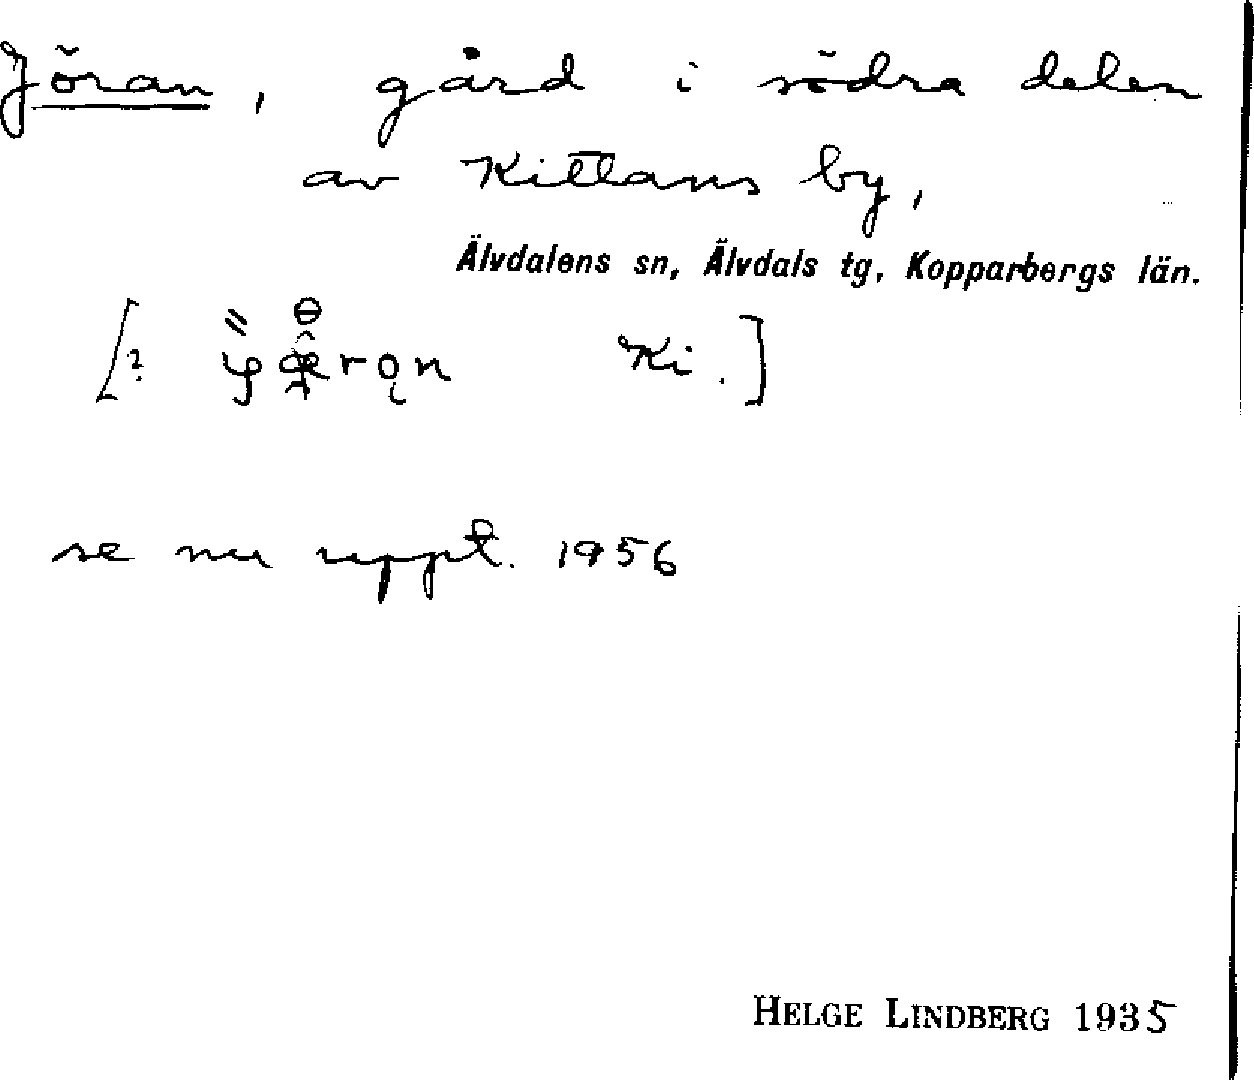 Jöran, gård i södra delen
av Kittans by,
Älvdalens sn, Älvdals tg, Kopparbergs län.
[? Ki.]
se nu uppt. 1956
HELGE LINDBERG 1935